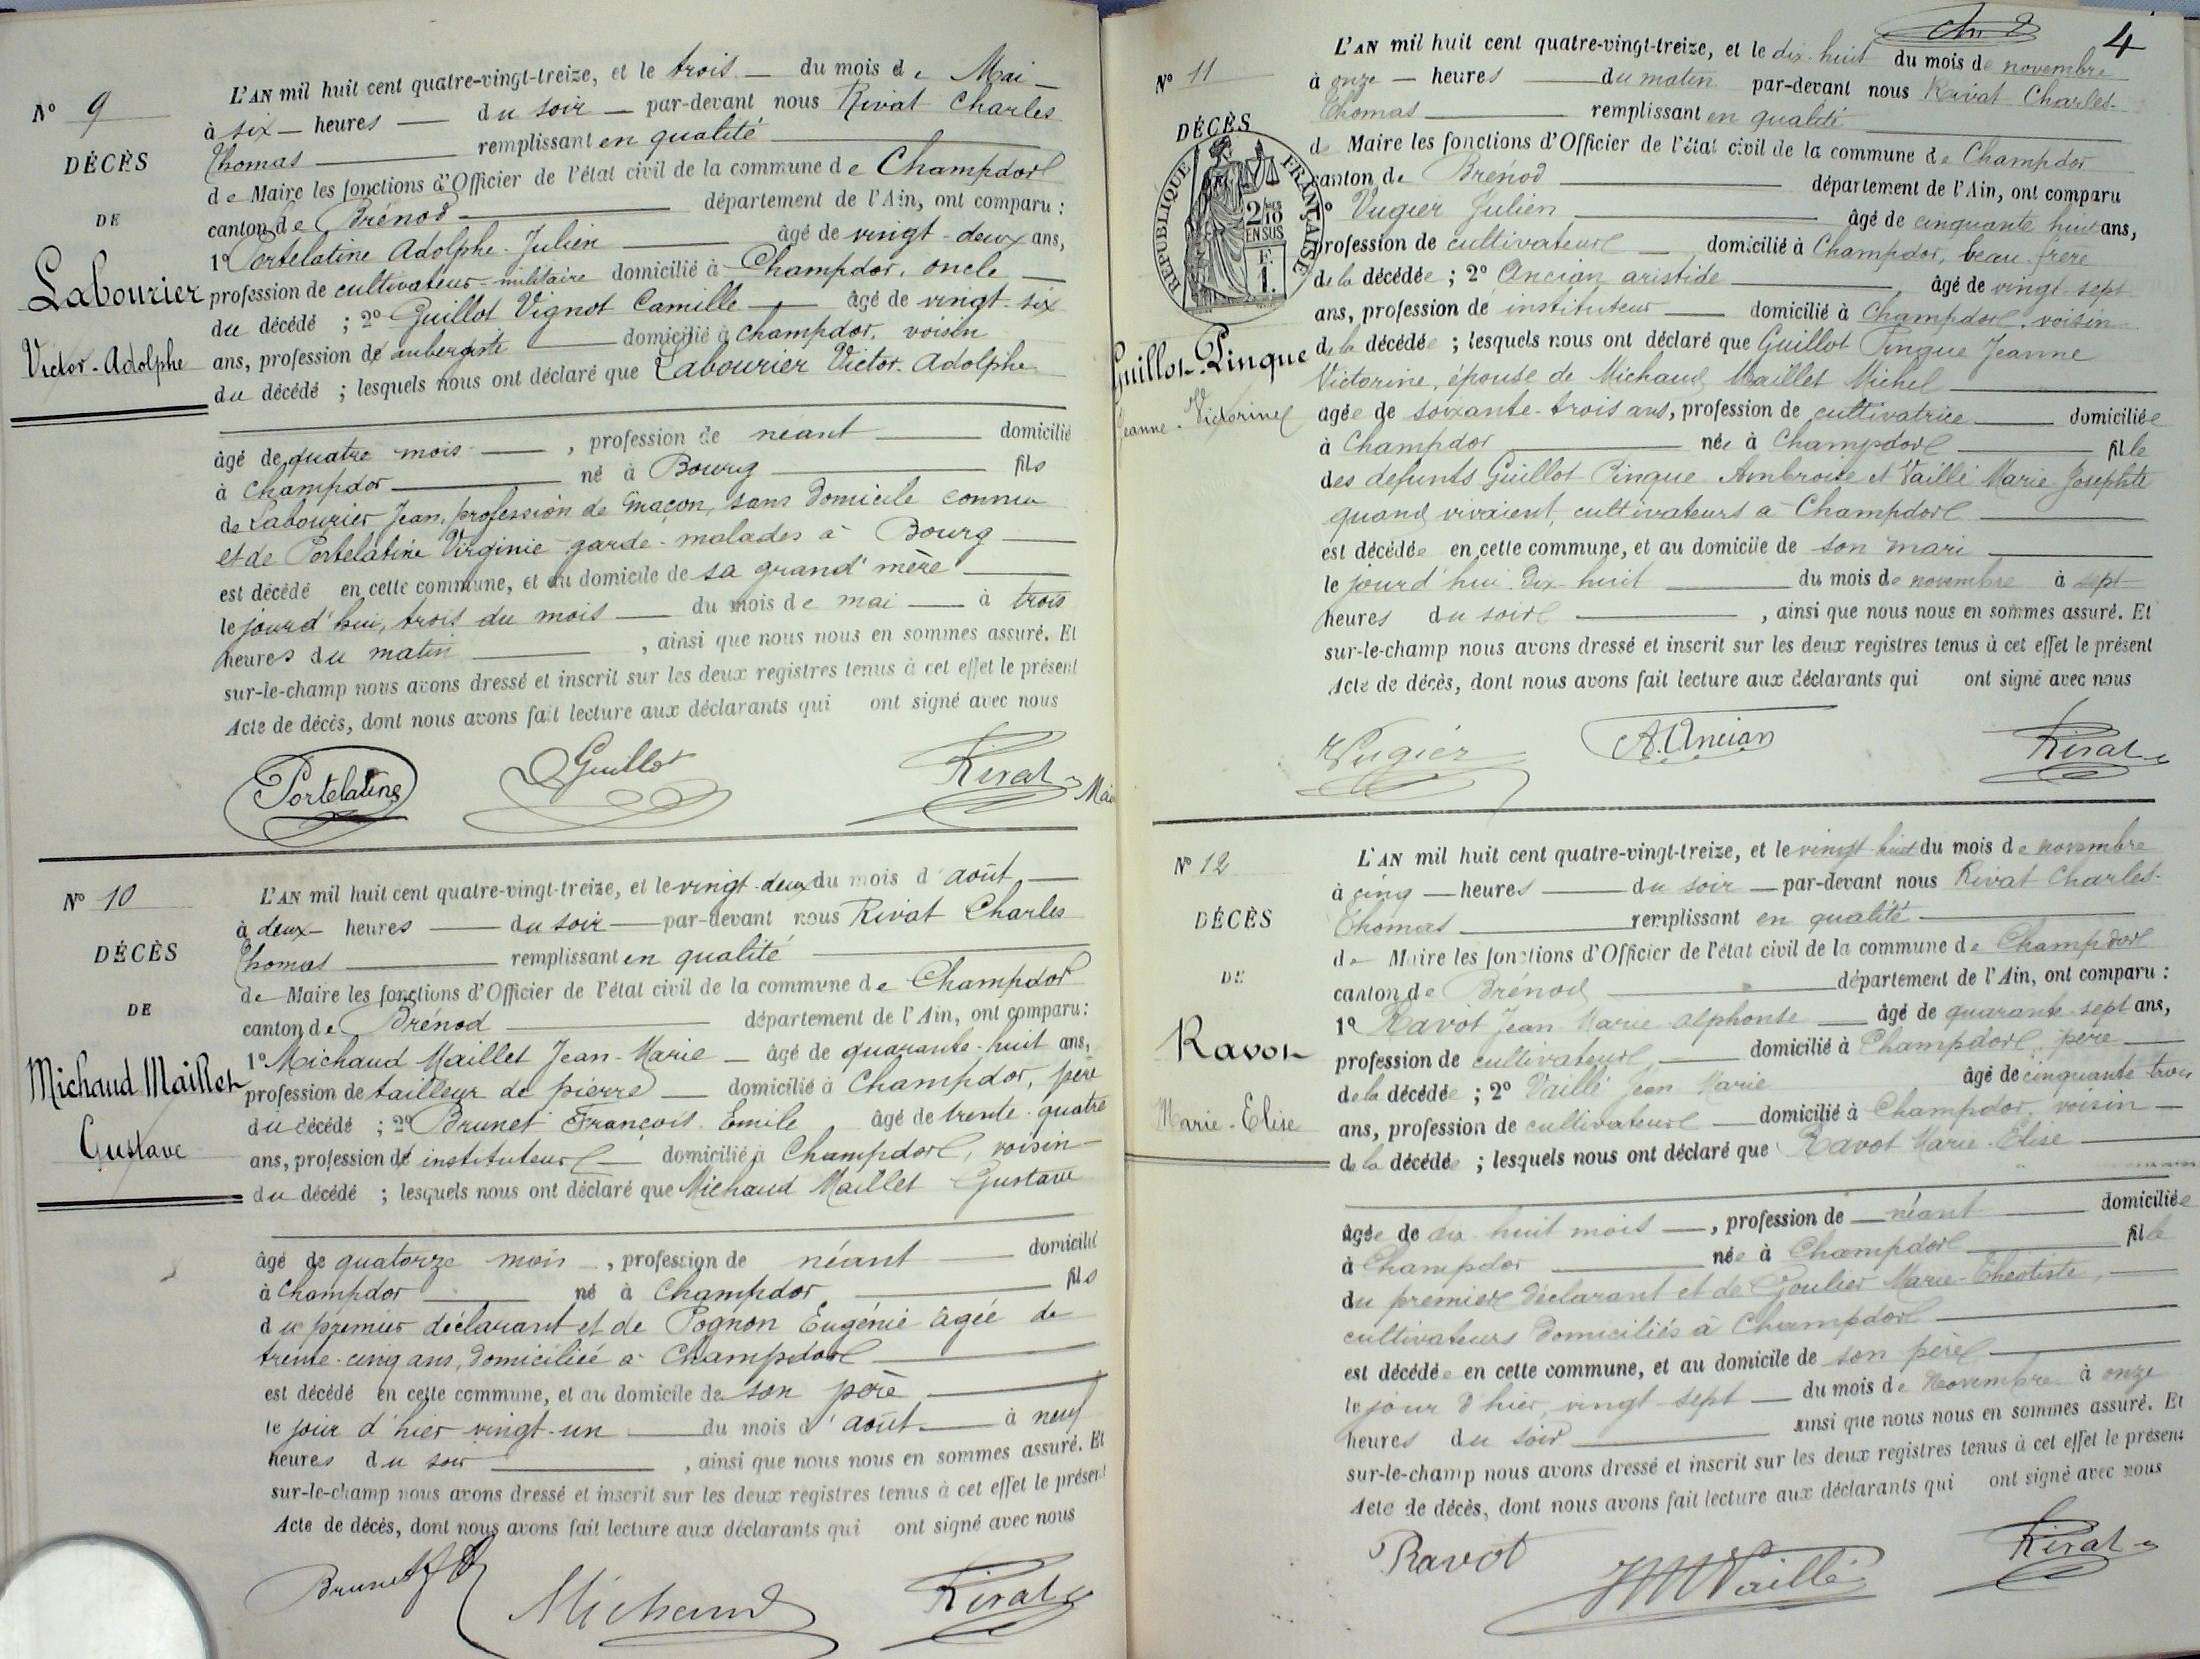 N° 9
DÉCÈS
DE
Labourier
Victor-Adolphe
L'AN mil huit cent quatre-vingt-treize, et le trois du mois de Mai
à six heures du soir par-devant nous Rivat Charles
Thomas remplissant en qualité
de Maire les fonctions d'Officier de l'état civil de la commune de Champdor
canton de Brénod département de l'Ain, ont comparu :
1° Portelatine Adolphe-Julien âgé de vingt-deux ans,
profession de cultivateur-militaire domicilié à Champdor, oncle
du décédé ; 2° Guillot Vignot Camille âgé de vingt-six
ans, profession de aubergiste domicilié à Champdor, voisin
du décédé ; lesquels nous ont déclaré que Labourier Victor-Adolphe
âgé de quatre mois, profession de néant domicilié
à Champdor né à Bourg fils
de Labourier Jean, profession de maçon, sans domicile connu
et de Portelatine Virginie garde-malades à Bourg
est décédé en cette commune, et au domicile de sa grand'mère
le jourd'hui, trois du mois du mois de mai à trois
heures du matin, ainsi que nous nous en sommes assuré. Et
sur-le-champ nous avons dressé et inscrit sur les deux registres tenus à cet effet le présent
Acte de décès, dont nous avons fait lecture aux déclarants qui ont signé avec nous
Portelatine Guillot Rivat
N° 10
DÉCÈS
DE
Michaud Maillet
Gustave
L'AN mil huit cent quatre-vingt-treize, et le vingt-deux du mois d'août,
à deux heures du soir par-devant nous Rivat Charles
Thomas remplissant en qualité
de Maire les fonctions d'Officier de l'état civil de la commune de Champdor
canton de Brénod département de l'Ain, ont comparu :
1° Michaud Maillet Jean-Marie âgé de quarante-huit ans,
profession de tailleur de pierre domicilié à Champdor, père
du décédé ; 2° Brunet François Emile âgé de trente-quatre
ans, profession de instituteur domicilié à Champdor, voisin
du décédé ; lesquels nous ont déclaré que Michaud Maillet Gustave
âgé de quatorze mois, profession de néant domicilié
à Champdor né à Champdor fils
du premier déclarant et de Pognon Eugénie âgée de
trente-cinq ans, domiciliée à Champdor
est décédé en cette commune, et au domicile de son père
le jour d'hier vingt-un du mois d'août à neuf
heures du soir, ainsi que nous nous en sommes assuré. Et
sur-le-champ nous avons dressé et inscrit sur les deux registres tenus à cet effet le présent
Acte de décès, dont nous avons fait lecture aux déclarants qui ont signé avec nous
Brunet Michaud Rivat
4
N° 11
DÉCÈS
RÉPUBLIQUE FRANÇAISE
2/10
EN SUS
F.
1.
Guillot-Pingue
Jeanne-Victorine
L'AN mil huit cent quatre-vingt-treize, et le dix-huit du mois de novembre
à onze heures du matin par-devant nous Rivat Charles
Thomas remplissant en qualité
de Maire les fonctions d'Officier de l'état civil de la commune de Champdor
canton de Brénod département de l'Ain, ont comparu
Vugier Julien âgé de cinquante huit ans,
profession de cultivateur domicilié à Champdor, beau-frère
de la décédée ; 2° Ancian aristide âgé de vingt-sept
ans, profession de instituteur domicilié à Champdor, voisin
de la décédée ; lesquels nous ont déclaré que Guillot Pingue Jeanne
Victorine, épouse de Michaud Maillet Michel
agée de soixante-trois ans, profession de cultivatrice domiciliée
à Champdor née à Champdor fille
des defunts Guillot-Pingue Ambroise et Vaillé Marie Josephte
quand vivaient, cultivateurs à Champdor
est décédée en cette commune, et au domicile de son mari
le jourd'hui dix-huit du mois de novembre à sept
heures du soir, ainsi que nous nous en sommes assuré. Et
sur-le-champ nous avons dressé et inscrit sur les deux registres tenus à cet effet le présent
Acte de décès, dont nous avons fait lecture aux déclarants qui ont signé avec nous
Vugier A. Ancian Rivat
N° 12
DÉCÈS
DE
Ravot
Marie-Elise
L'AN mil huit cent quatre-vingt-treize, et le vingt-huit du mois de novembre
à cinq heures du soir par-devant nous Rivat Charles
Thomas remplissant en qualité
de Maire les fonctions d'Officier de l'état civil de la commune de Champdor
canton de Brénod département de l'Ain, ont comparu :
1° Ravot Jean Marie alphonse âgé de quarante-sept ans,
profession de cultivateur domicilié à Champdor, père
de la décédée ; 2° Vaillé Jean Marie âgé de cinquante-trois
ans, profession de cultivateur domicilié à Champdor, voisin
de la décédée ; lesquels nous ont déclaré que Ravot Marie-Elise
âgée de dix-huit mois, profession de néant domiciliée
à Champdor née à Champdor fille
du premier déclarant et de Goulier Marie-Théotiste,
cultivateurs domiciliés à Champdor
est décédée en cette commune, et au domicile de son père
le jour d'hier, vingt-sept du mois de Novembre à onze
heures du soir ainsi que nous nous en sommes assuré. Et
sur-le-champ nous avons dressé et inscrit sur les deux registres tenus à cet effet le présent
Acte de décès, dont nous avons fait lecture aux déclarants qui ont signé avec nous
Ravot JMVaillé Rivat